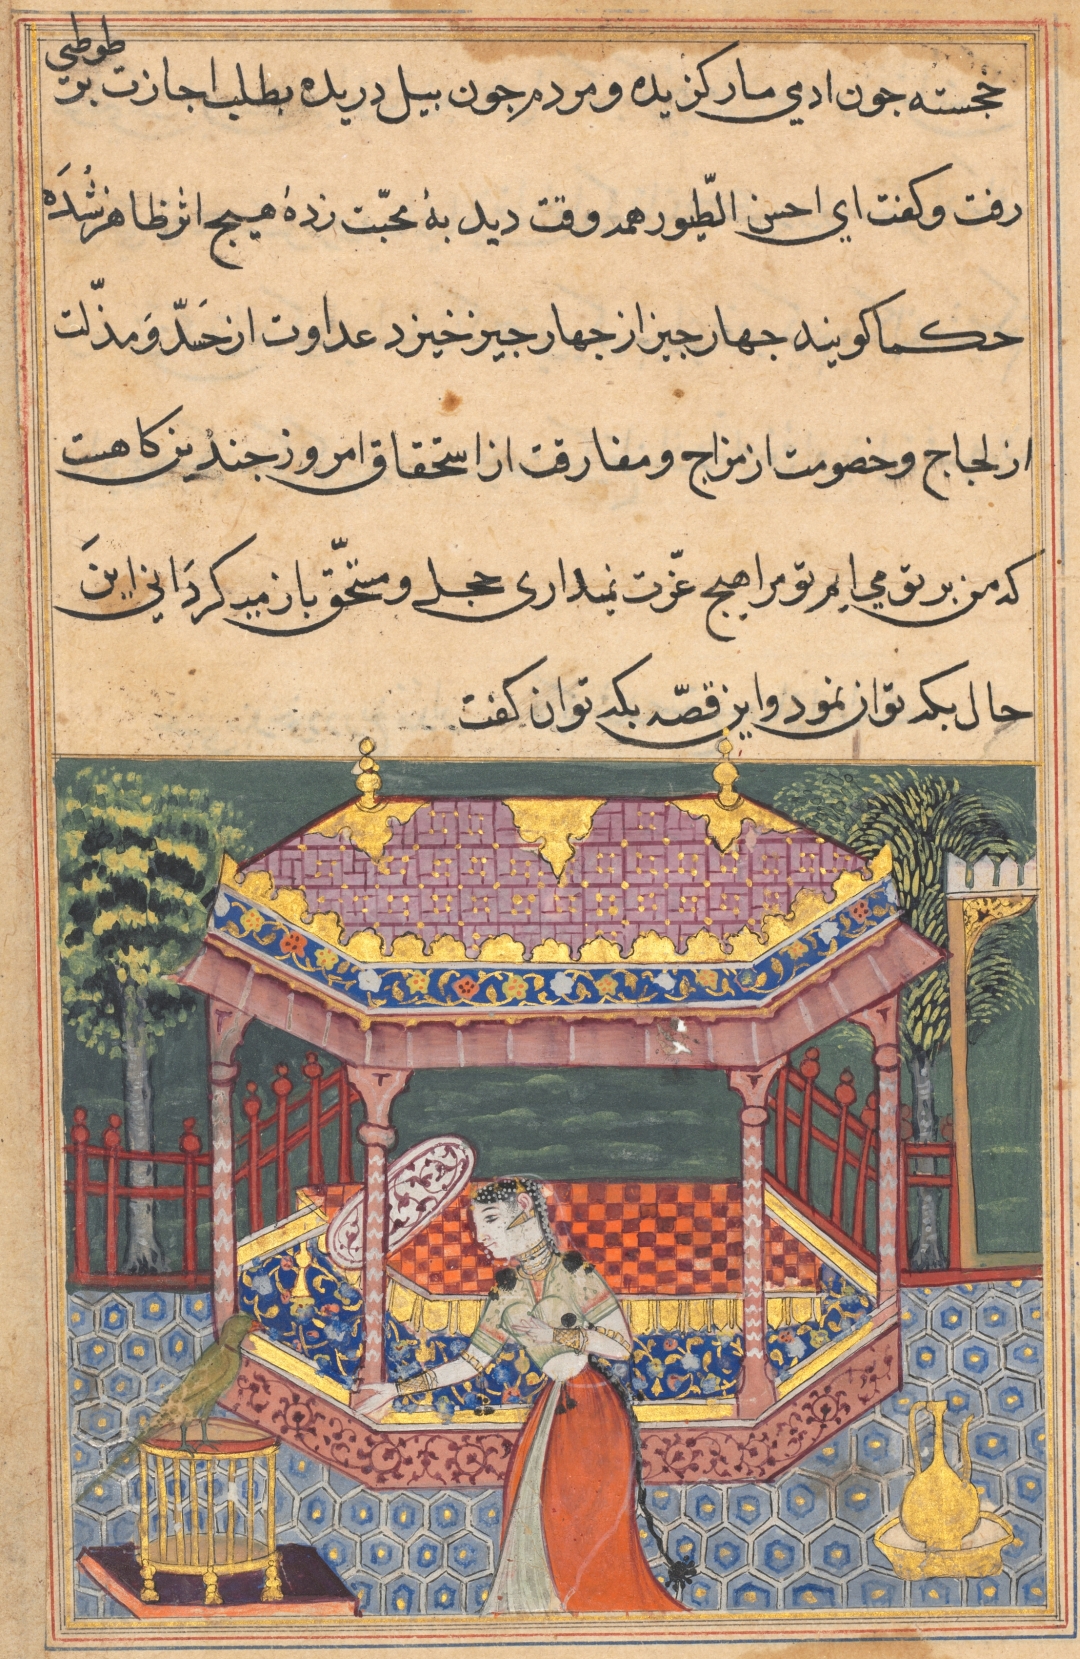 خجسته جون ادمی مار کزیده و مردم جون بیل دریده بطلب اجازت بر طوطی
رفت و کفت ای احسن الطّیور همه وقت دید بهٔ محبّت زدهٔ هیچ اثر ظاهر نشُدَه
حکما کویند جهار جیز از جهار جیز خیزد عداوت از حَسَد وَ مذّلت
از لجاج و خصومت از مزاج و مفارقت از استحقاق امروز جندین کاهست
که من بر تو می ایم تو مرا هیچ عزّت نمیداری و مستحقّ باز میکردَانی اینَ
حال بکه توان نمود و این قصّه بکه توان کفت